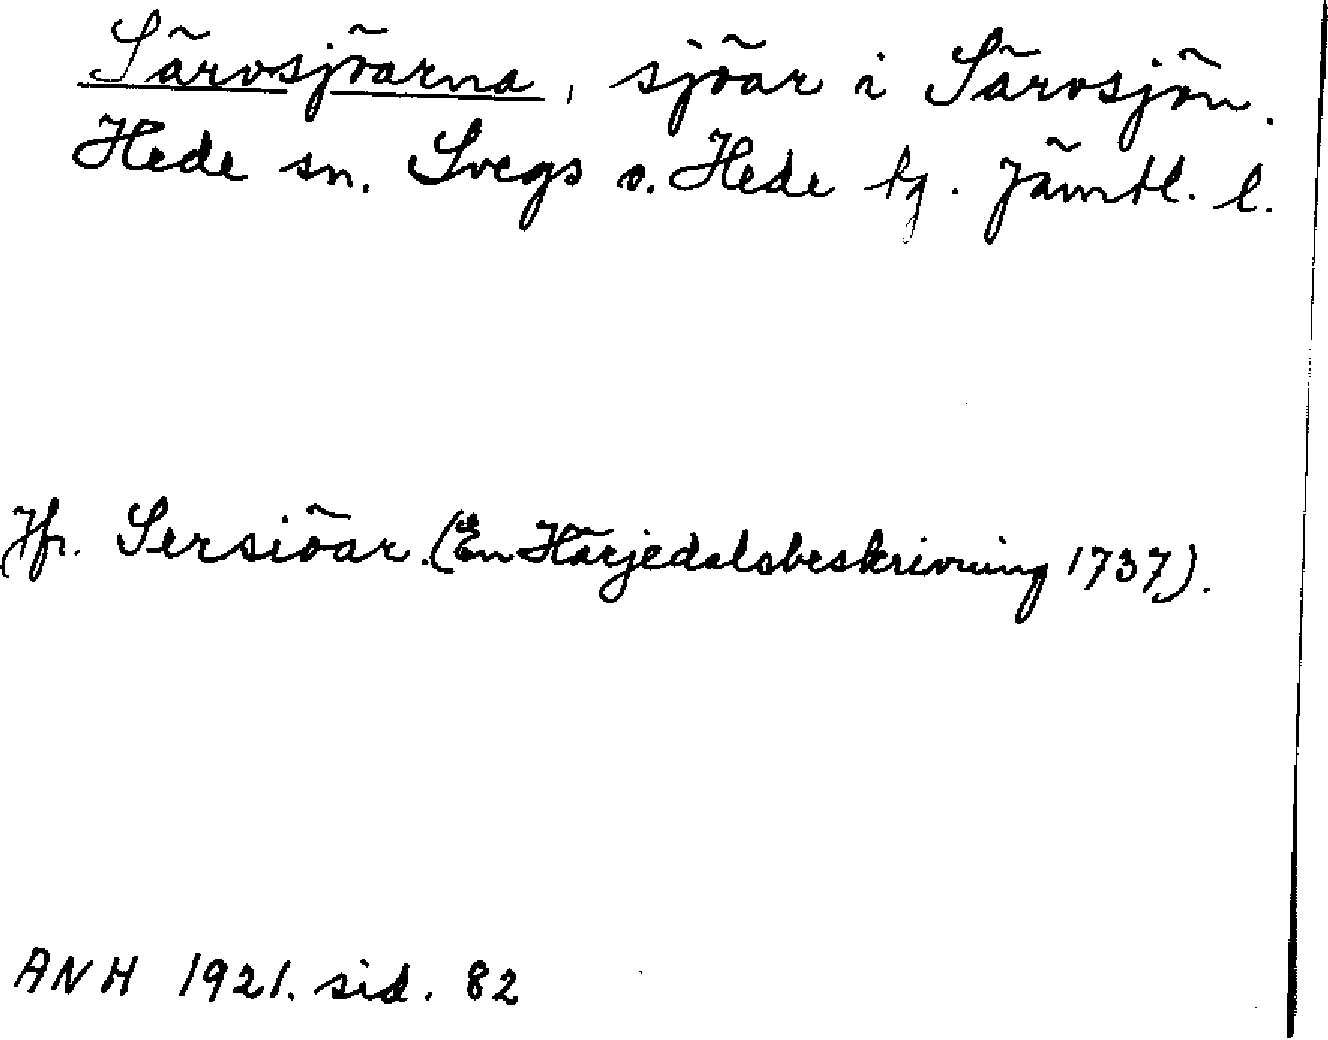 Särvsjöarna, sjöar i Särvsjön.
Hede sn. Svegs o. Hede tg. Jämtl. l.
Jfr. Sersiöar. (En Härjedalsbeskrivning 1737).
ANH 1921. sid. 82